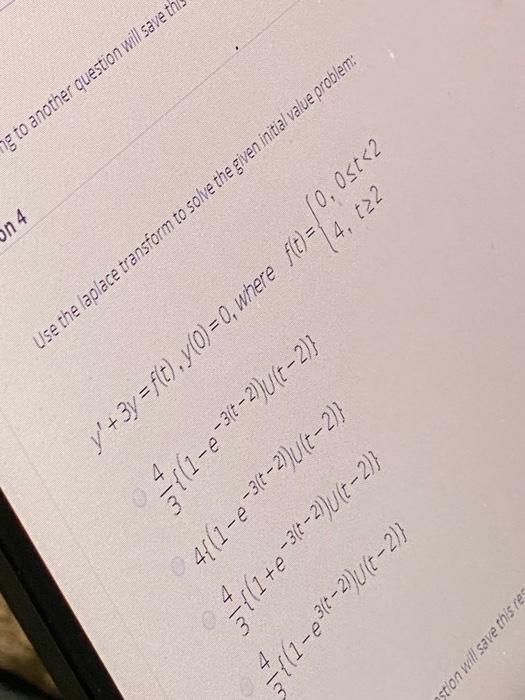 ng to another question will save this
on 4
Use the laplace transform to solve the given initial value problem:
y'+3y=f(t), y(0)=0, where f(t)={0, 0≤t<2
4, t≥2
4/3{(1-e^-3(t-2))U(t-2)}
4{(1-e^-3(t-2))U(t-2)}
4/3{(1+e^-3(t-2))U(t-2)}
4/3{(1-e^3(t-2))U(t-2)}
estion will save this res